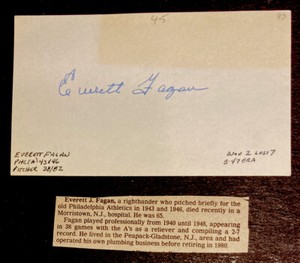 45
Everett Fagan
EVERETT FAGAN
PHI(A) 43 & 46
PITCHER 38/82
WON 2 LOST 7
5.47 ERA
Everett J. Fagan, a righthander who pitched briefly for the
old Philadelphia Athletics in 1943 and 1946, died recently in a
Morristown, N.J., hospital. He was 65.
Fagan played professionally from 1940 until 1948, appearing
in 38 games with the A's as a reliever and compiling a 2-7
record. He lived in the Peapack-Gladstone, N.J., area and had
operated his own plumbing business before retiring in 1980.